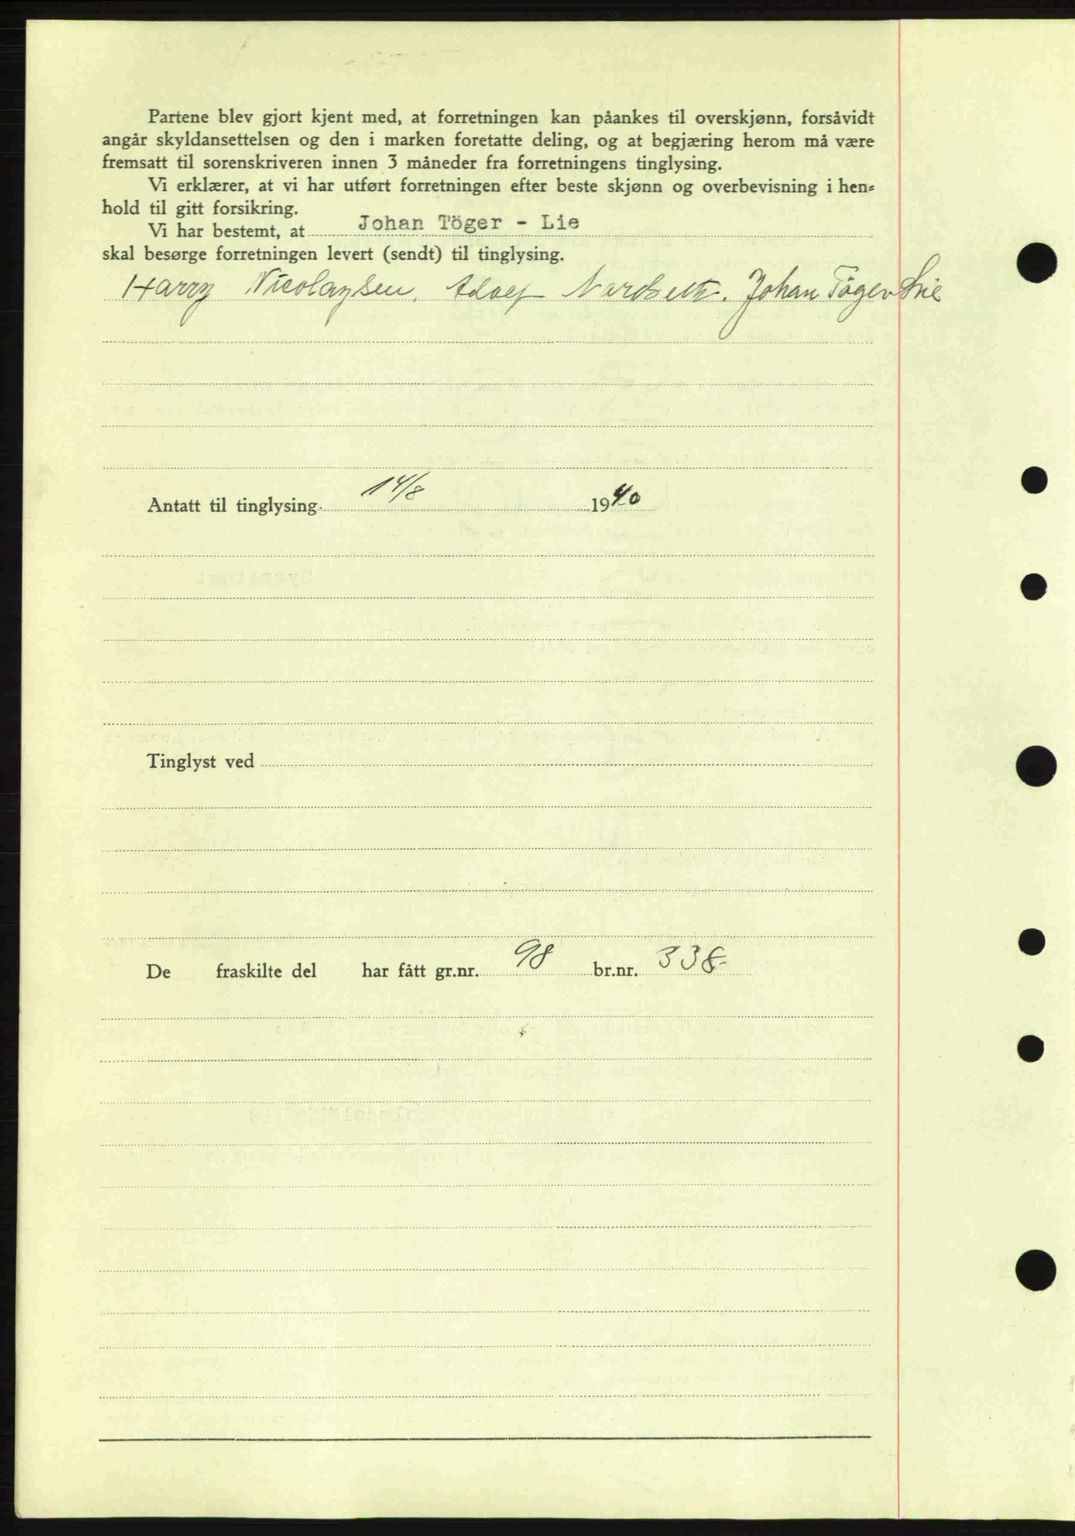 Partene blev gjort kjent med, at forretningen kan påankes til overskjønn, forsåvidt
angår skyldansettelsen og den i marken foretatte deling, og at begjæring herom må være
fremsatt til sorenskriveren innen 3 måneder fra forretningens tinglysing.
Vi erklærer, at vi har utført forretningen efter beste skjønn og overbevisning i hen=
hold til gitt forsikring.
Vi har bestemt, at Johan Töger - Lie
skal besørge forretningen levert (sendt) til tinglysing.
Harry Nicolaysen. Adolf Johan Töger Lie
Antatt til tinglysing 14/8 1940
Tinglyst ved
De fraskilte del har fått gr.nr. 98 br.nr. 338